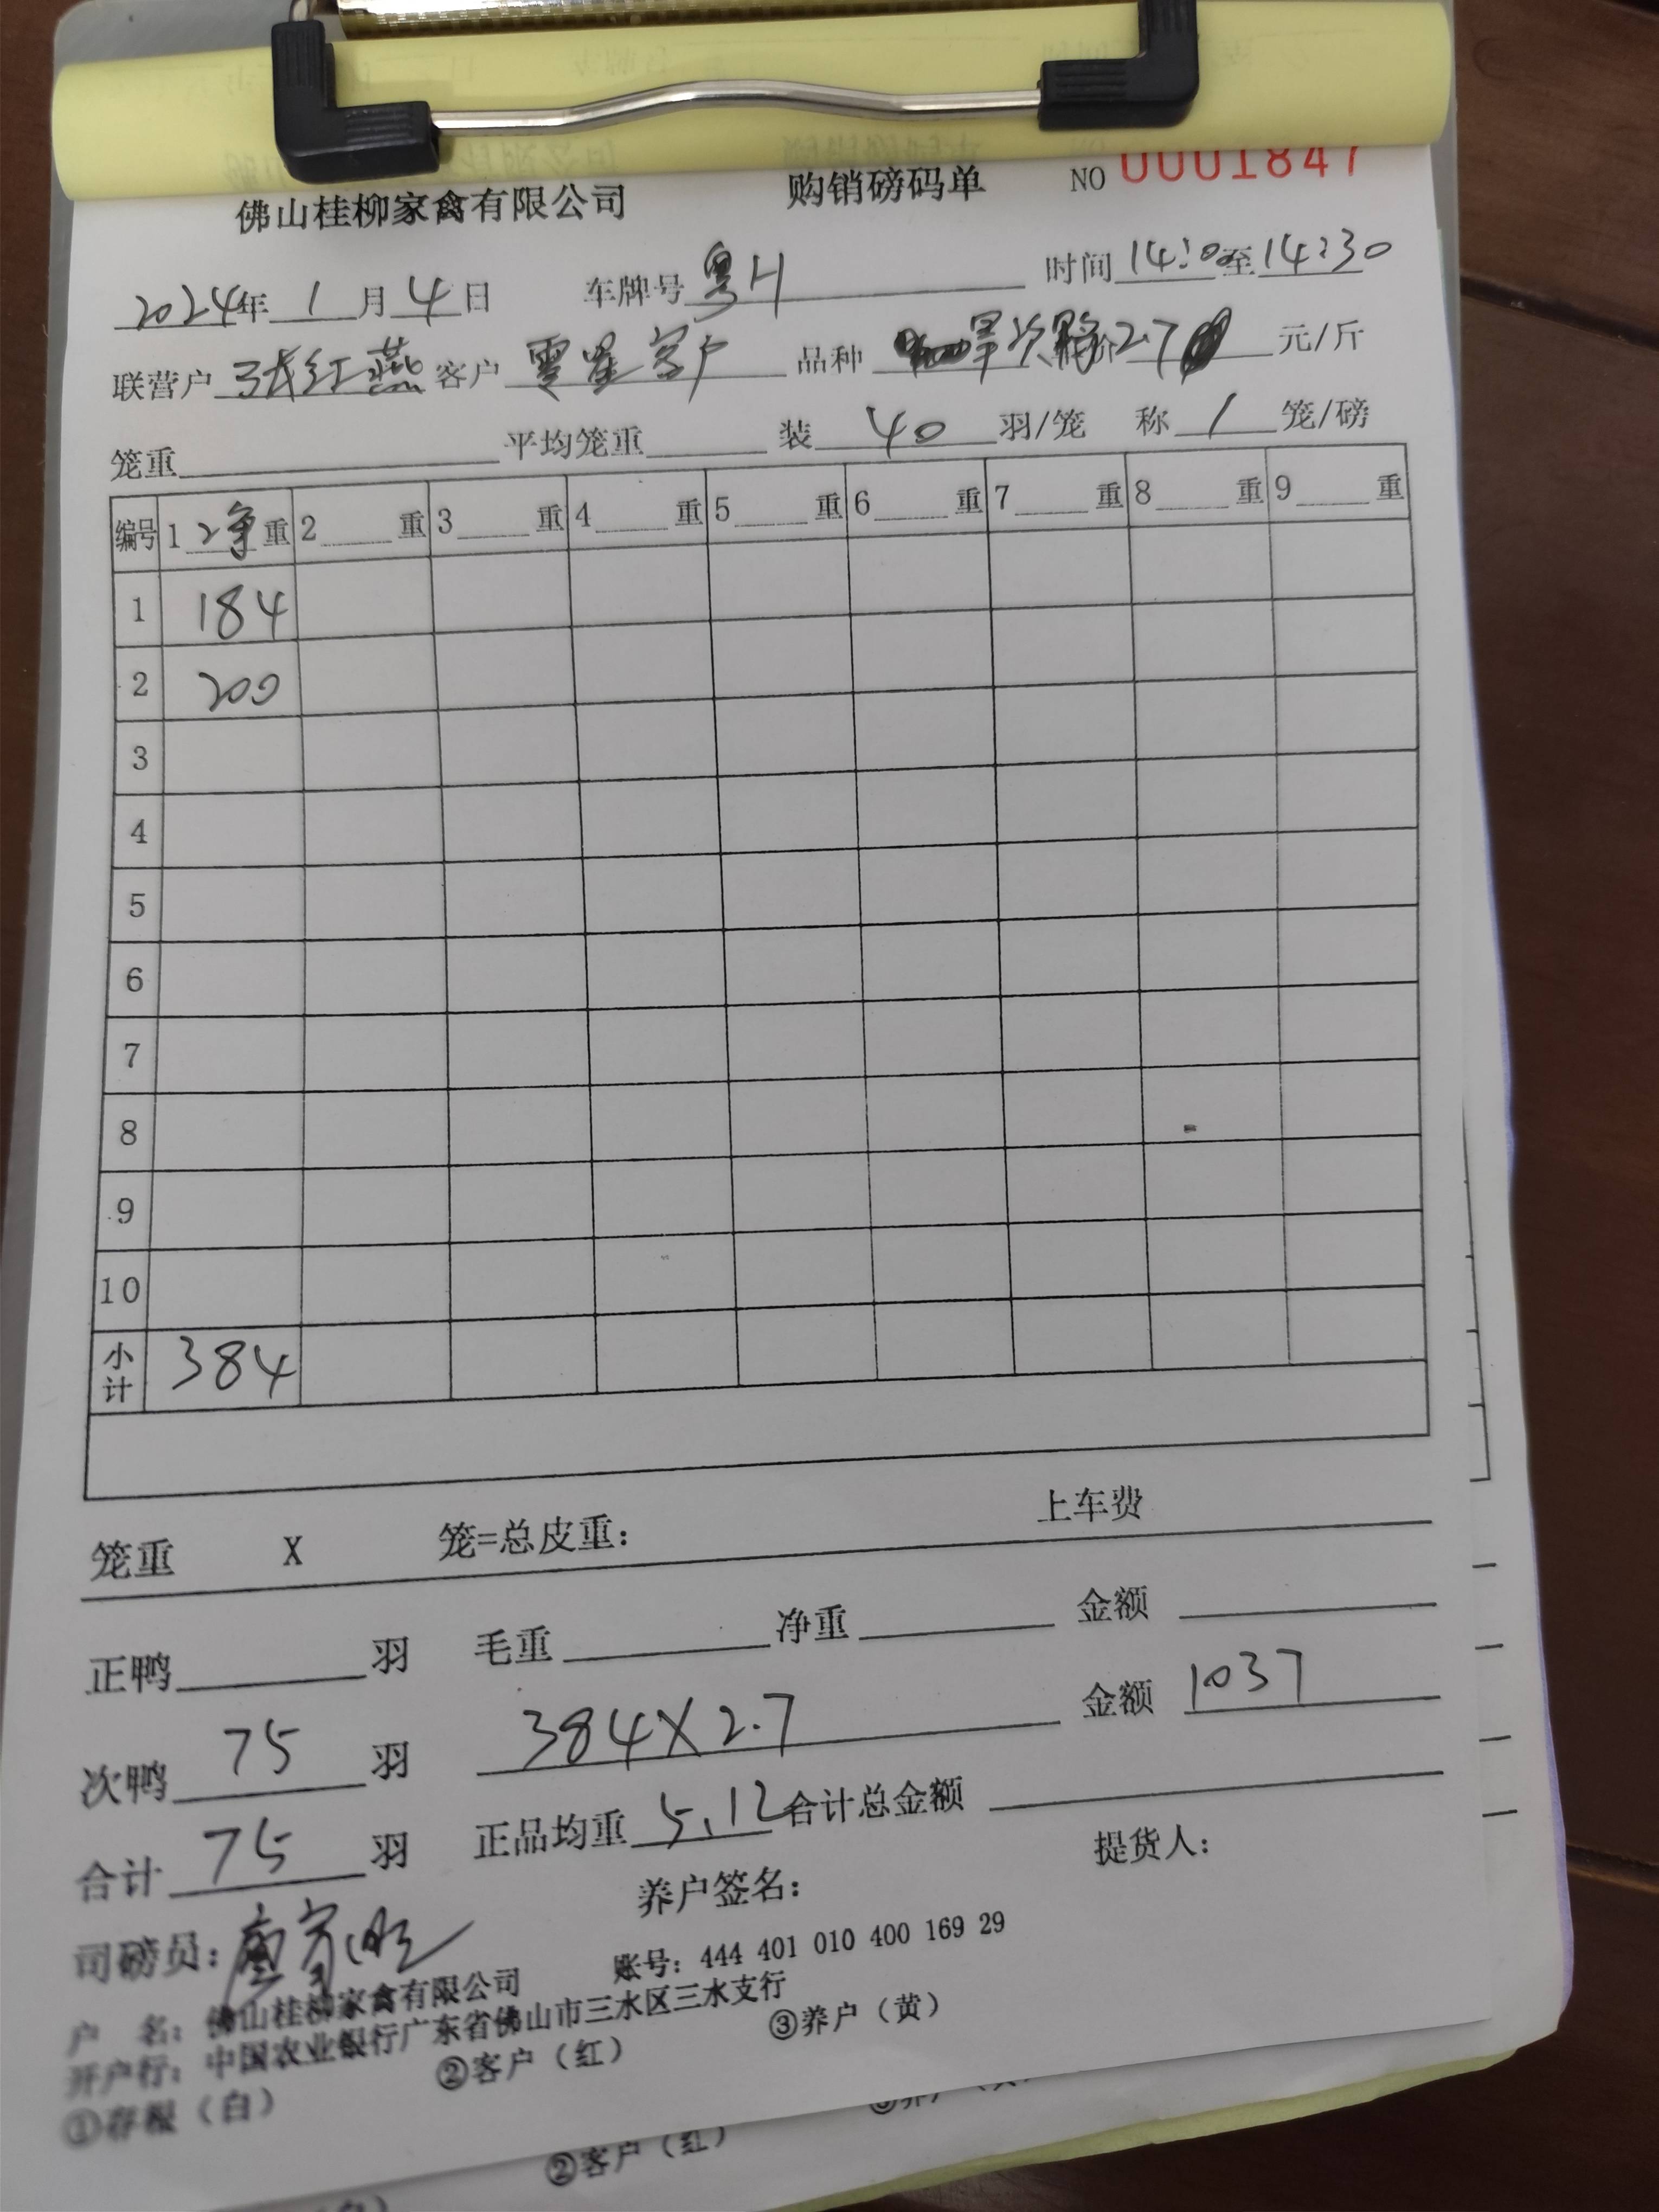 佛山桂柳家禽有限公司 购销磅码单 NO 0001847
2024年 1 月 4 日 车牌号 粤H 时间 14:00 至 14:30
联营户 张红燕 客户 零星客户 品种 旱次鸭 价 2.7 元/斤
笼重 平均笼重 装 40 羽/笼 称 1 笼/磅
编号 1 净 重 2 重 3 重 4 重 5 重 6 重 7 重 8 重 9 重
1 184
2 200
3
4
5
6
7
8
9
10
小计 384
笼重 X 笼=总皮重: 上车费
正鸭 羽 毛重 净重 金额
次鸭 75 羽 384X2.7 金额 1037
合计 75 羽 正品均重 5.12 合计总金额
司磅员: 养户签名: 提货人:
户 名: 佛山桂柳家禽有限公司 账号: 444 401 010 400 169 29
开户行: 中国农业银行广东省佛山市三水区三水支行
①存根（白） ②客户（红） ③养户（黄）
②客户（红）